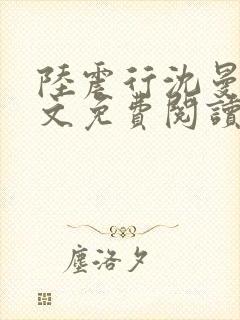 陸震行沈曼
文免費閱讀
塵洛夕